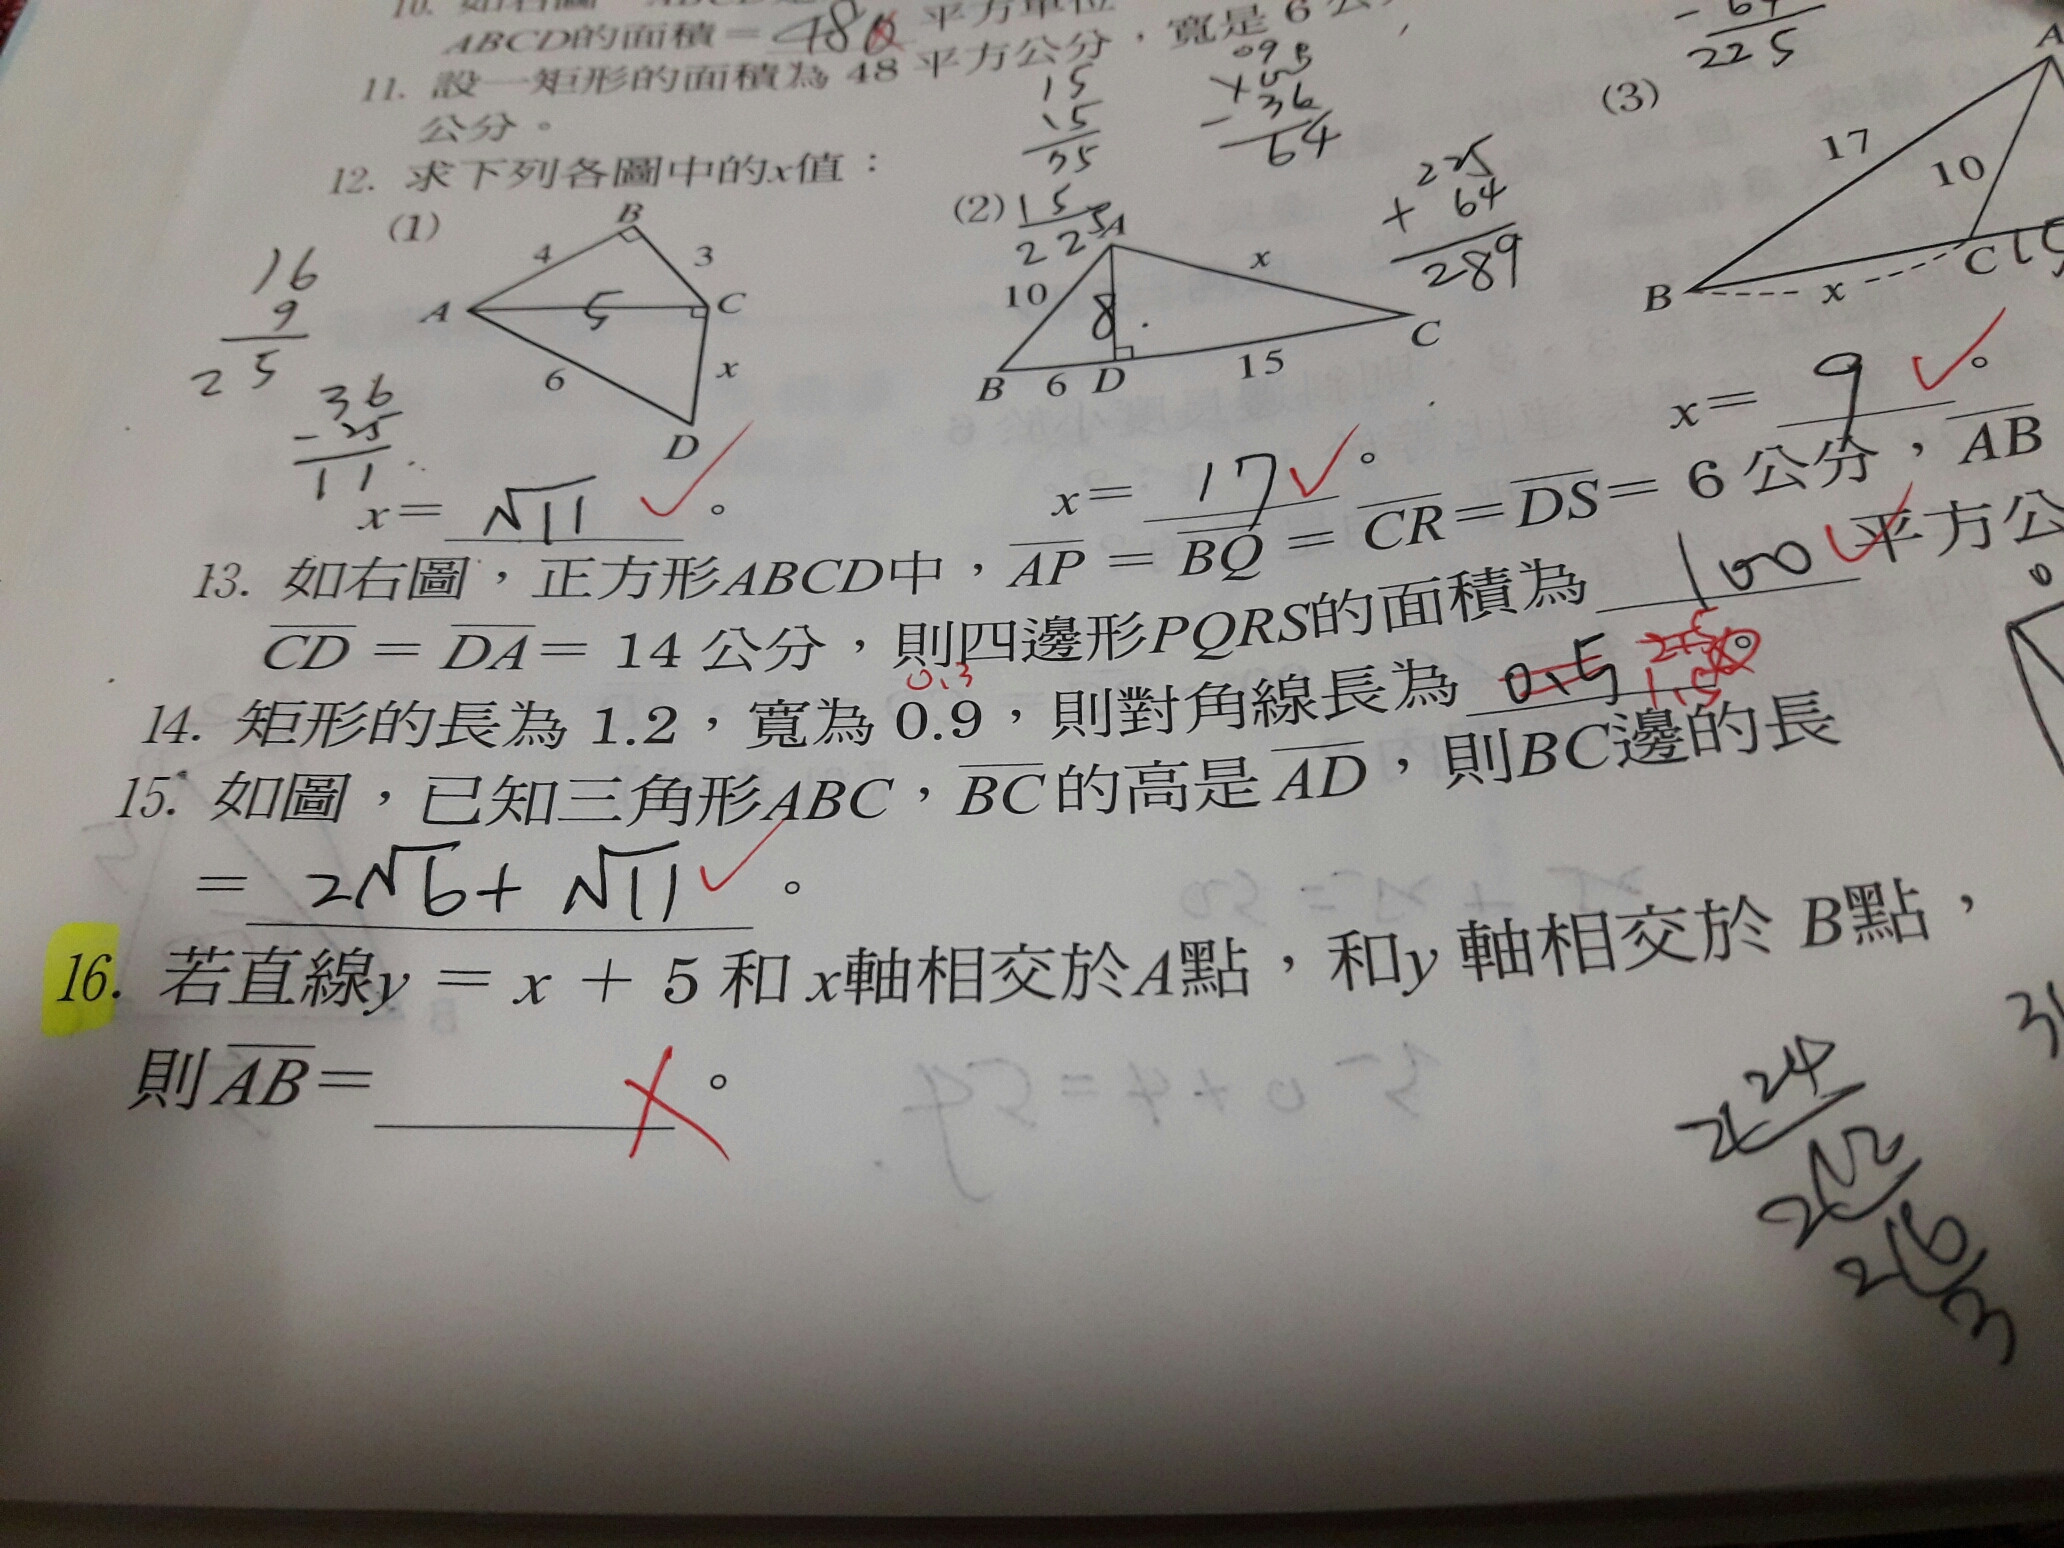 ABCD的面積=480 平方單位
11. 設一矩形的面積為 48 平方公分,寬是 6
公分。
12. 求下列各圖中的x值:
15
15
75
15
225
09
36
64
225
+ 64
289
- 64
225
(1)
B
4
3
A
5
C
6
x
D
16
9
25
36
- 25
11
x= √11 。
(2)
A
10
8
x
B 6 D 15 C
x= 17 。
(3)
A
17
10
B x C 15
x= 9 。
13. 如右圖,正方形ABCD中,AP = BQ = CR = DS = 6 公分,AB
CD = DA = 14 公分,則四邊形PQRS的面積為 100 平方公
0.3
14. 矩形的長為 1.2,寬為 0.9,則對角線長為 0.5 1.5 。
15. 如圖,已知三角形ABC,BC的高是AD,則BC邊的長
= 2√6+√11 。
16. 若直線y = x + 5 和 x軸相交於A點,和y 軸相交於 B點,
則AB= 。
2 24
2 12
2 6
3